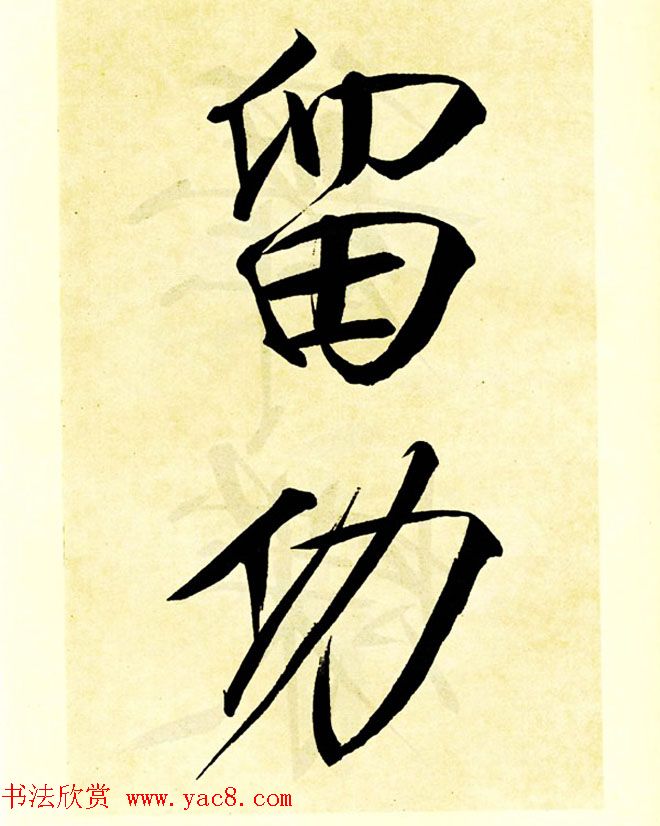 留
功
书法欣赏 www.yac8.com